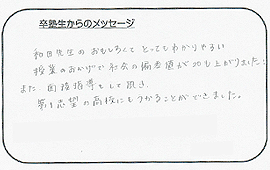 卒塾生からのメッセージ
和田先生のおもしろくて とってもわかりやすい
授業のおかげで社会の偏差値が20も上がりました!
また 面接指導もして頂き
第1志望の高校にもうかることができました。